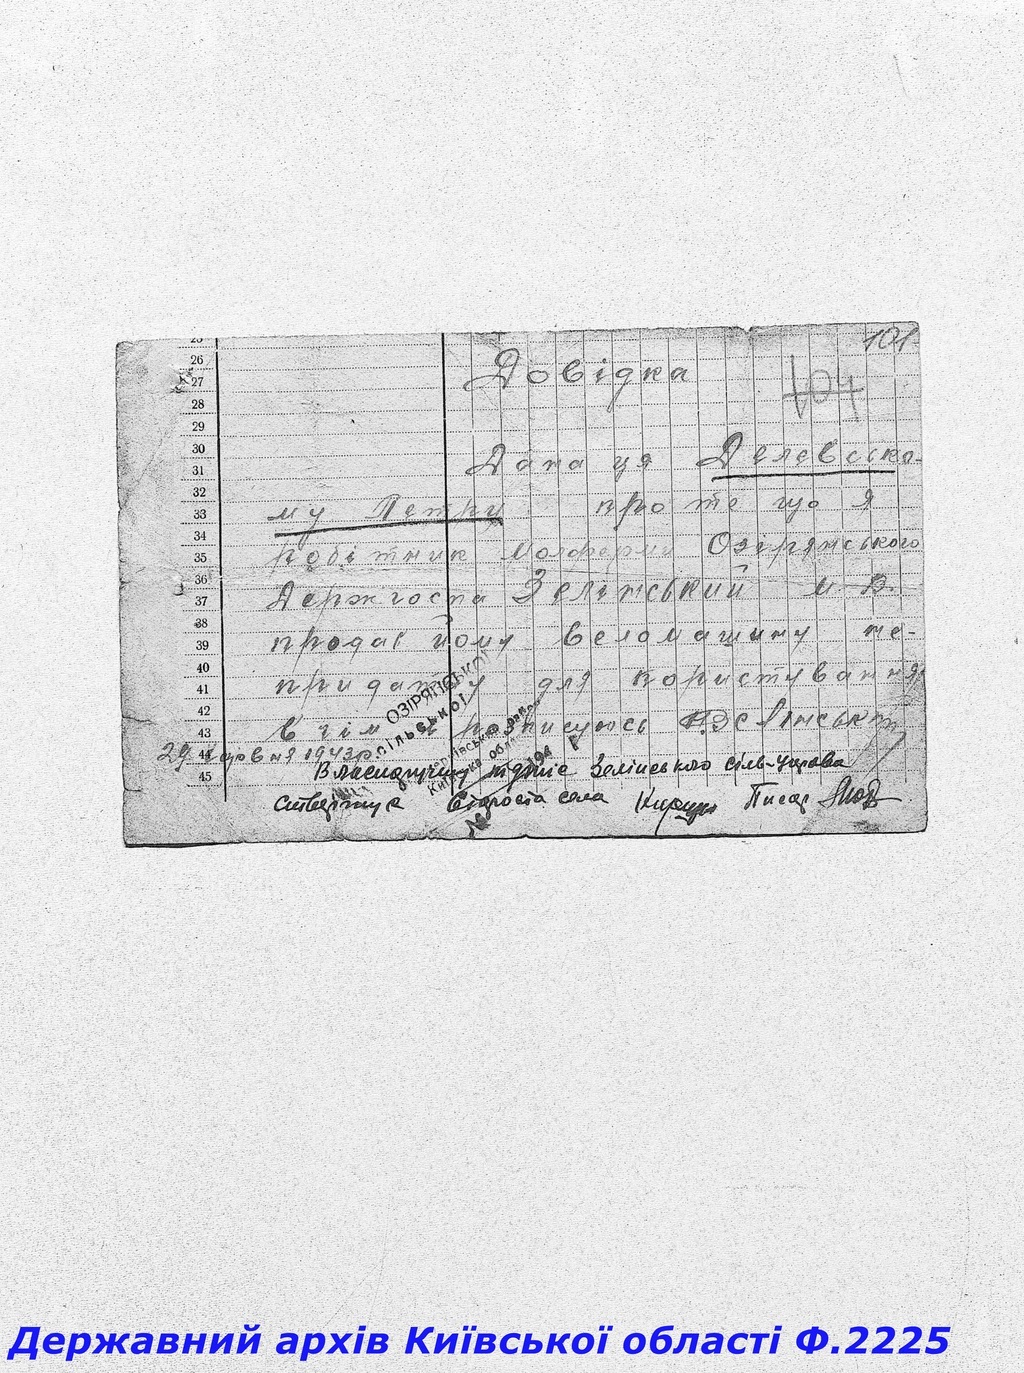 101
104
Довідка
Дана ця Делевсько-
му Петру про те що я
робітник молферми Озірянського
Держгоспа Зелінський М В.
продав йому веломашину не-
придатну для користування
в чім и розписуюсь Зелінський
29 червня 1943 р.
Власноручний підпис Зелінського сіль-управа
ствержує Староста села Писар
ОЗІРЯНСЬКОЇ
сільської
194 р
№
25
26
27
28
29
30
31
32
33
34
35
36
37
38
39
40
41
42
43
44
45
Державний архів Київської області Ф.2225